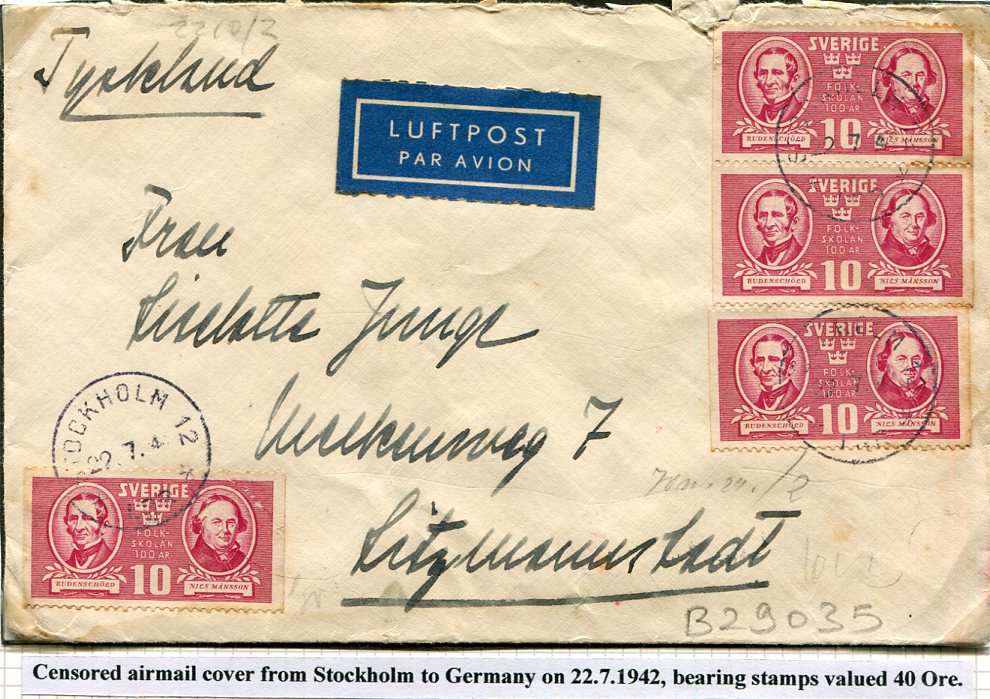 Tyskland
LUFTPOST
PAR AVION
SVERIGE
FOLK-
SKOLAN
100 ÅR
RUDENSCHÖLD 10 NILS MÅNSSON
SVERIGE
FOLK-
SKOLAN
100 ÅR
RUDENSCHÖLD 10 NILS MÅNSSON
SVERIGE
FOLK-
SKOLAN
100 ÅR
RUDENSCHÖLD 10 NILS MÅNSSON
Frau
Liselotte Junge
7
Litzmannstadt
STOCKHOLM 12
22.7.4
SVERIGE
FOLK-
SKOLAN
100 ÅR
RUDENSCHÖLD 10 NILS MÅNSSON
B29035
Censored airmail cover from Stockholm to Germany on 22.7.1942, bearing stamps valued 40 Ore.